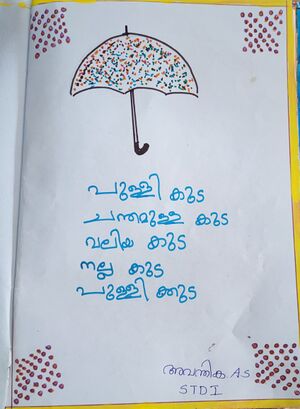 പുള്ളി കുട
ചന്തമുള്ള കുട
വലിയ കുട
നല്ല കുട
പുള്ളി ക്കുട
അവന്തിക. A.S
STD I